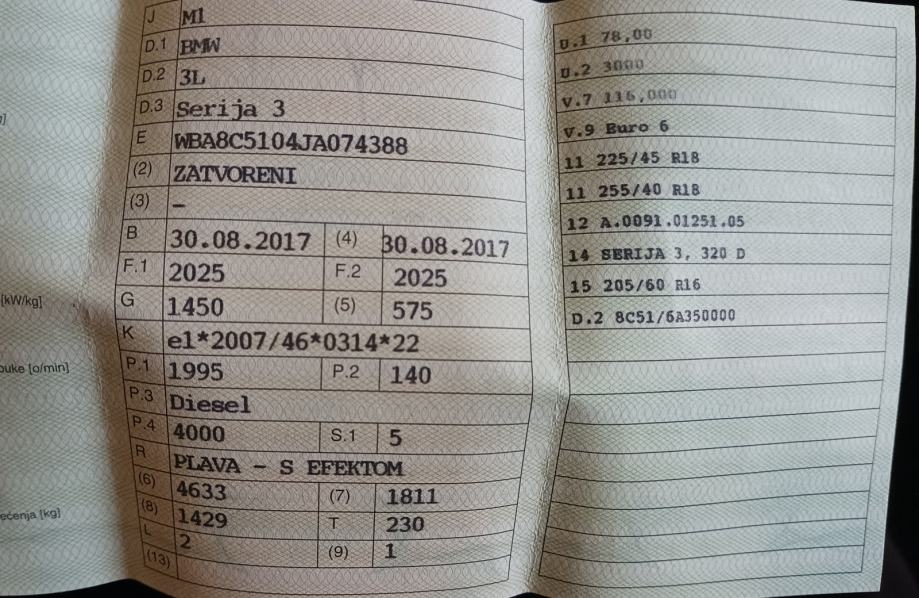 J M1
D.1 BMW
D.2 3L
D.3 Serija 3
E WBA8C5104JA074388
(2) ZATVORENI
(3) –
B 30.08.2017 (4) 30.08.2017
F.1 2025 F.2 2025
G 1450 (5) 575
[kW/kg]
K e1*2007/46*0314*22
P.1 1995 P.2 140
[o/min]
P.3 Diesel
P.4 4000 S.1 5
R PLAVA – S EFEKTOM
(6) 4633 (7) 1811
(8) 1429 T 230
[kg]
L 2 (9) 1
(13)
U.1 78,00
U.2 3000
V.7 116,000
V.9 Euro 6
11 225/45 R18
11 255/40 R18
12 A.0091.01251.05
14 SERIJA 3, 320 D
15 205/60 R16
D.2 8C51/6A350000